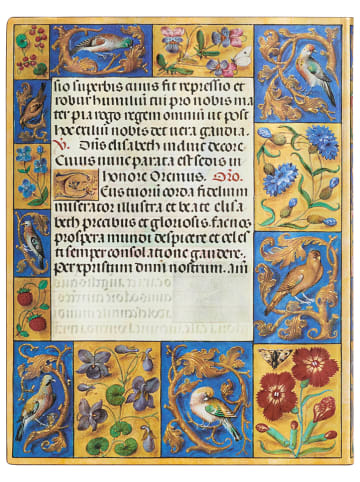 sio superbis anns fit repressio et
robur humiliū tui pro nobis ma
ter pia rogo regem omniū ut post
hoc exiliū nobis det vera gaudia.
V. Diis elisabeth induit decore
Cuius nunc parata est sedis in
honore Oremus. Oro.
Deus tuorū corda fidelium
miserator illustra et beate elisa
beth precibus et gloriosis. fac nos
prospera mundi despicere et celes
ti semper consolatione gaudere.
Per xpristum dnm nostrum. am